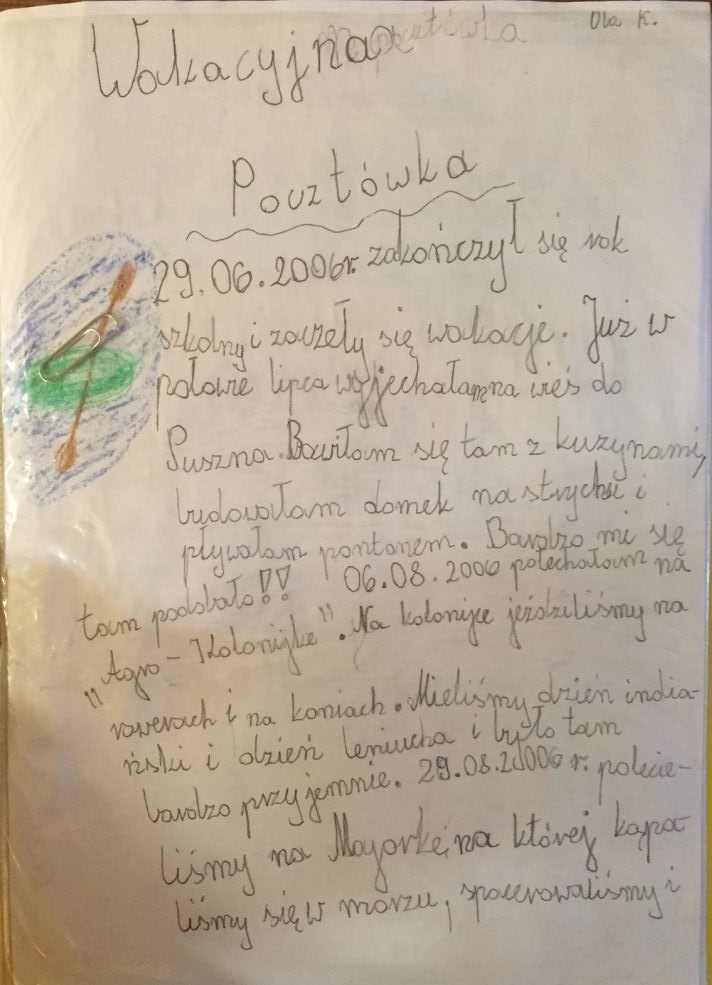 Ola K.
Wakacyjna
Pocztówka
29.06.2006r. zakończył się rok
szkolny i zaczeły się wakacje. Już w
połowie lipca wyjechałam na wieś do
Puszna. Bawiłam się tam z kuzynami,
budowałam domek na strychu i
pływałam pontonem. Bardzo mi się
tam podobało!! 06.08.2006 pojechałam na
"Agro-Kolonijke". Na kolonijce jeździliśmy na
rowerach i na koniach. Mieliśmy dzień india-
ński i dzień leniucha i było tam
bardzo przyjemnie. 29.08.2006 r. polecie-
liśmy na Majorkę, na której kąpa-
liśmy się w morzu, spacerowaliśmy i